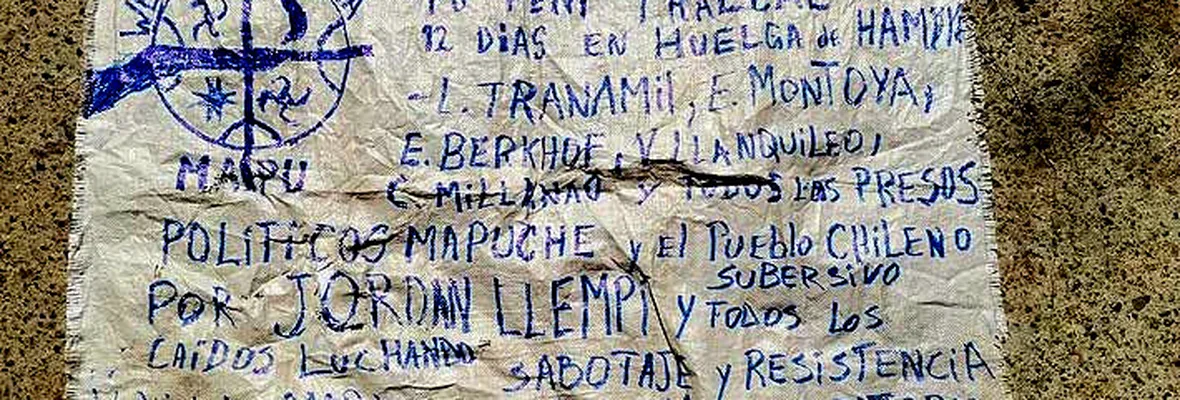 12 DÍAS EN HUELGA de HAMBRE
-L. TRANAMIL, E. MONTOYA,
E. BERKHOF, V. LLANQUILEO,
MAIPU
C. MILLANAO y TODOS LOS PRESOS
POLITICOS MAPUCHE y El Pueblo CHILENO
SUBERSIVO
POR JORDAN LLEMPI y TODOS LOS
CAÍDOS LUCHANDO SABOTAJE y RESISTENCIA